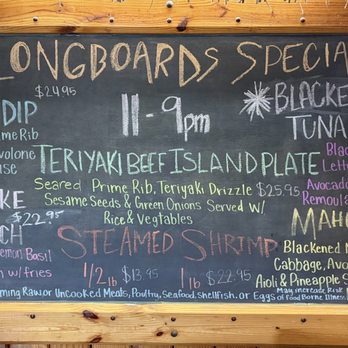 LONGBOARDS SPECIA
$24.95
DIP
ime Rib
ovolone
use
KE
$22.95
CH
emon Basil
n w/ fries
11-9pm
TERIYAKI BEEF ISLAND PLATE
Seared Prime Rib, Teriyaki Drizzle $25.95
Sesame Seeds & Green Onions Served w/
Rice & Vegtables
STEAMED SHRIMP
1/2 lb $13.95 1 lb $22.95
BLACKE
TUNA
Blac
Lett
Avocado
Remoula
MAH
Blackened M
Cabbage, Avo
Aioli & Pineapple S
uming Raw or Uncooked Meats, Poultry, Seafood, Shellfish, or Eggs May Increase Risk
of Food Borne Illness